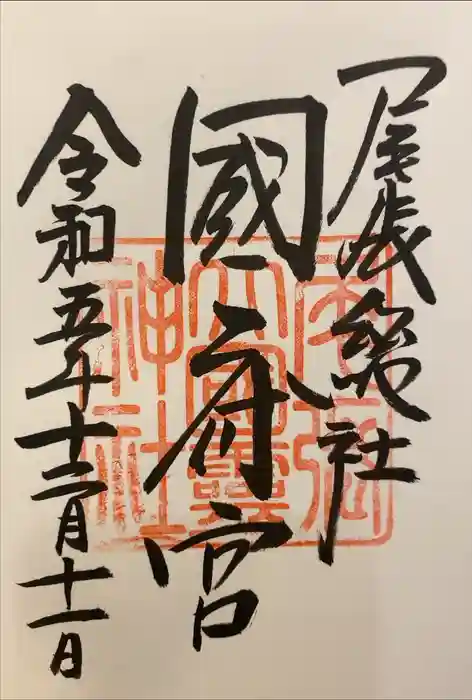 尾張総社
國府宮
令和五年十二月十一日
尾張
大國霊
神社